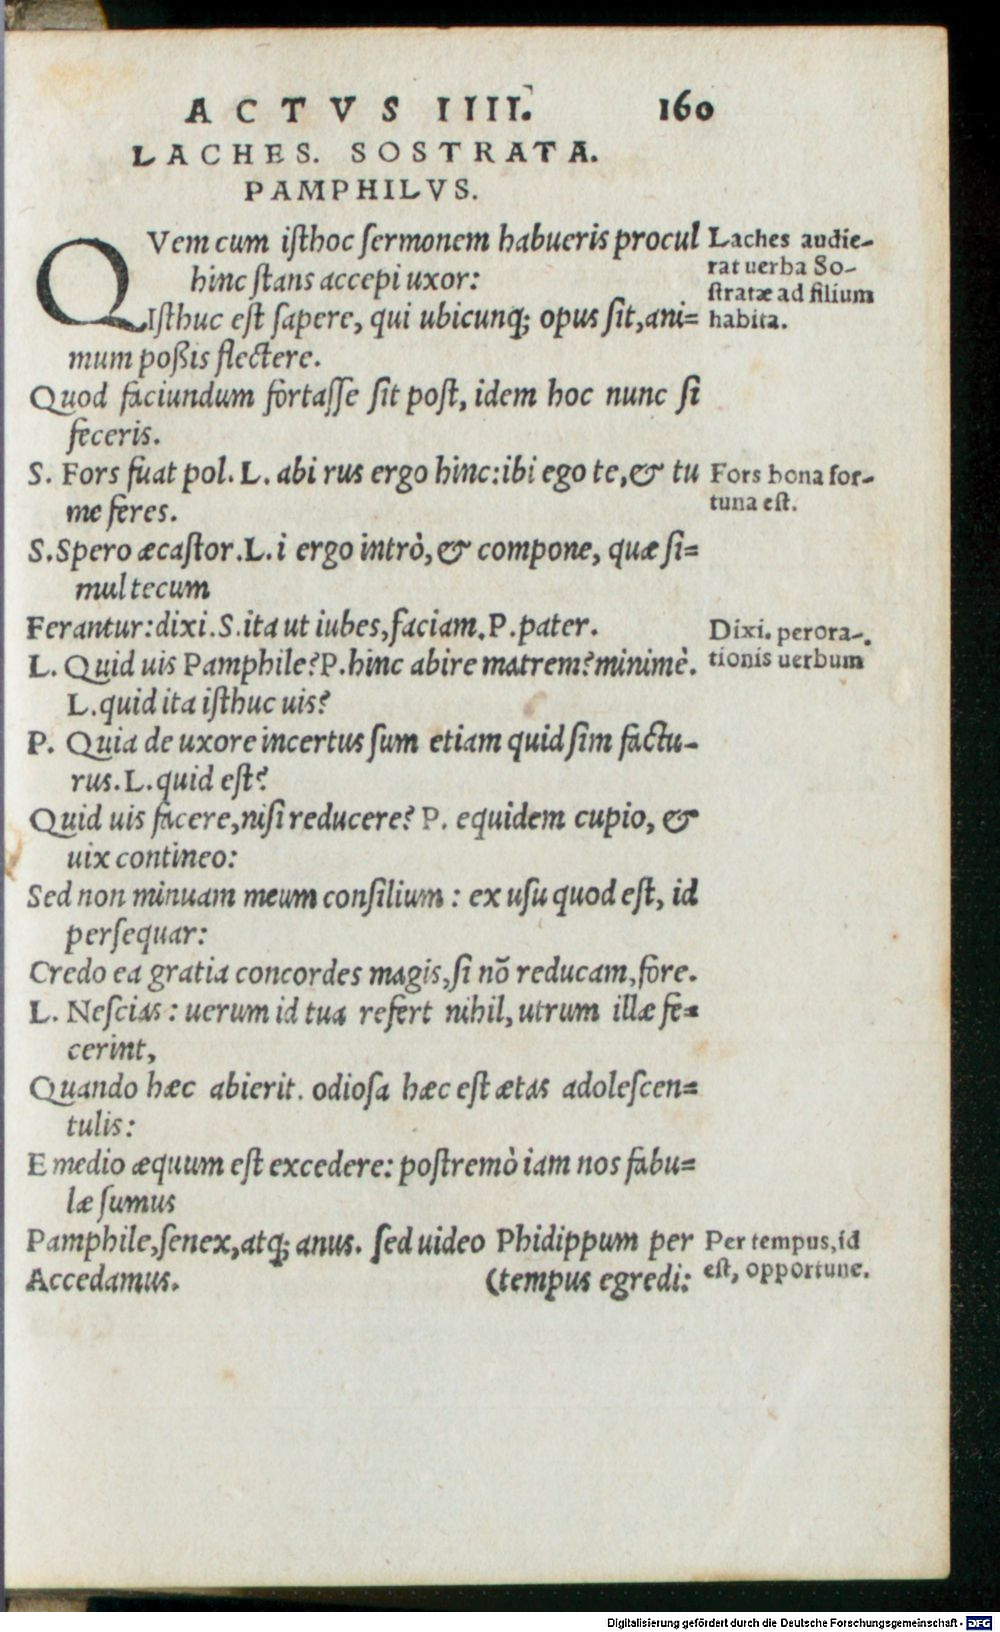 ACTVS IIII. 160
LACHES. SOSTRATA.
PAMPHILVS.
QVem cum iſthoc ſermonem habueris procul
hinc ſtans accepi uxor:
Iſthuc eſt ſapere, qui ubicunq; opus ſit, ani=
mum poßis flectere.
Quod faciundum fortaſſe ſit poſt, idem hoc nunc ſi
feceris.
S. Fors fuat pol. L. abi rus ergo hinc: ibi ego te, & tu
me feres.
S. Spero æcaſtor. L. i ergo intrò, & compone, quæ ſi=
mul tecum
Ferantur: dixi. S. ita ut iubes, faciam. P. pater.
L. Quid uis Pamphile? P. hinc abire matrem? minimè.
L. quid ita iſthuc uis?
P. Quia de uxore incertus ſum etiam quid ſim factu-
rus. L. quid eſt?
Quid uis facere, niſi reducere? P. equidem cupio, &
uix contineo:
Sed non minuam meum conſilium: ex uſu quod eſt, id
perſequar:
Credo ea gratia concordes magis, ſi nō reducam, fore.
L. Neſcias: uerum id tua refert nihil, utrum illæ fe=
cerint,
Quando hæc abierit. odioſa hæc eſt ætas adoleſcen=
tulis:
E medio æquum eſt excedere: poſtremò iam nos fabu=
læ ſumus
Pamphile, ſenex, atq; anus. ſed uideo Phidippum per
Accedamus. (tempus egredi:
Laches audie-
rat uerba So-
ſtratæ ad filium
habita.
Fors bona for-
tuna eſt.
Dixi. perora-
tionis uerbum
Per tempus, id
eſt, opportune.
Digitalisierung gefördert durch die Deutsche Forschungsgemeinschaft - DFG